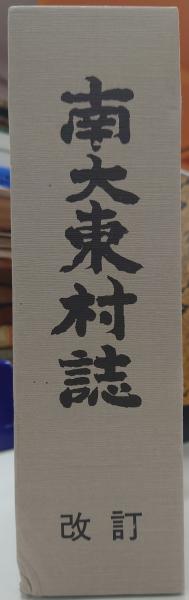 南大東村誌
改訂